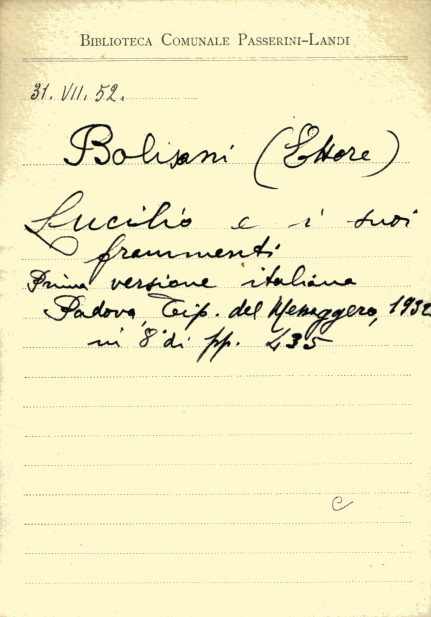 BIBLIOTECA COMUNALE PASSERINI-LANDI
31. VII. 52.
Bolisani (Ettore)
Lucilio e i suoi
frammenti
Prima versione italiana
Padova, Tip. del Messaggero, 1932
in 8° di pp. 435
C